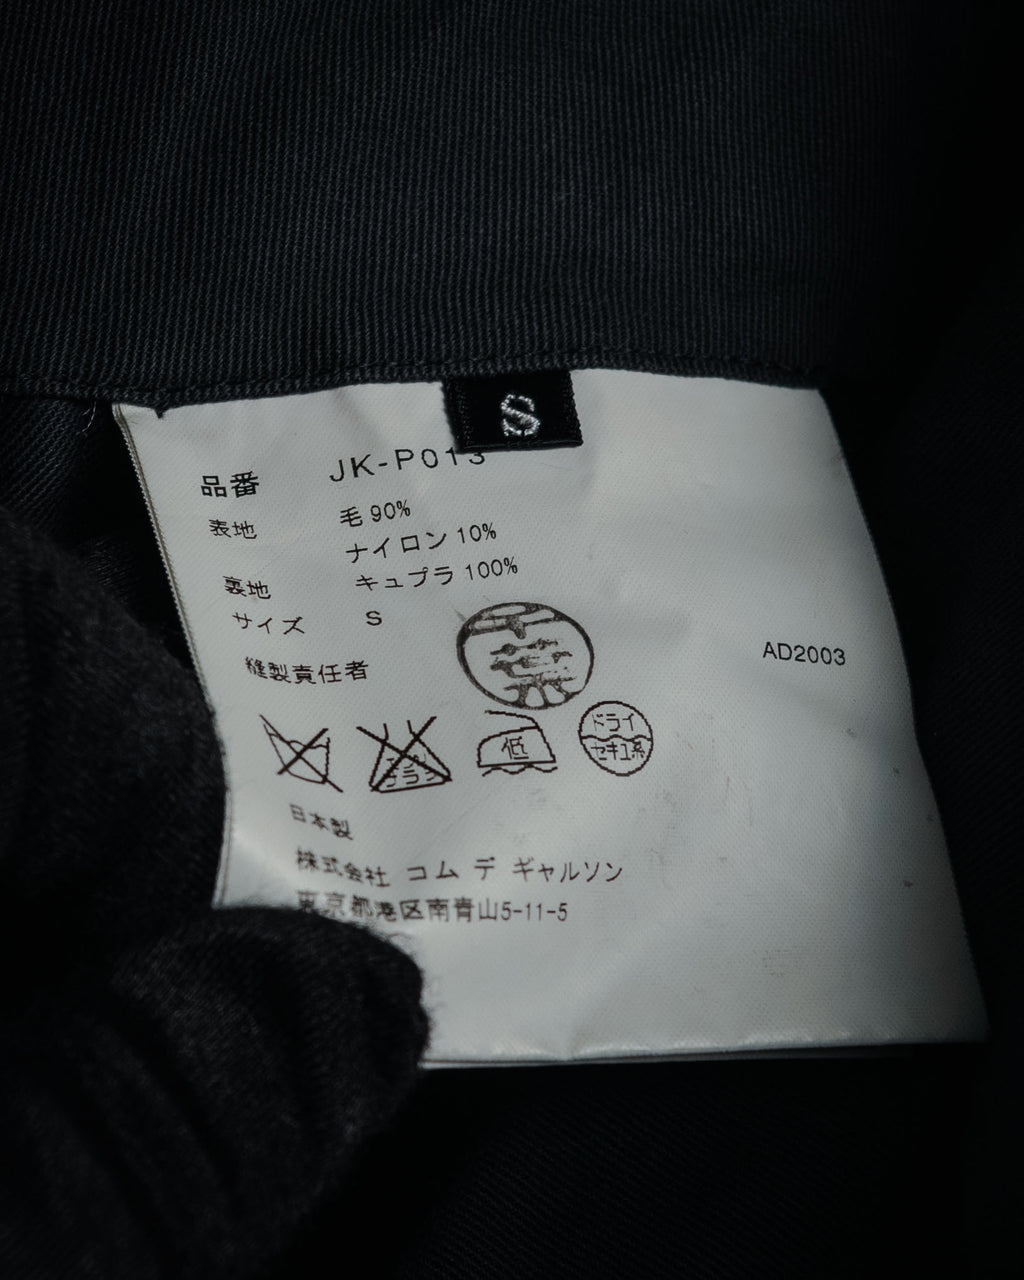 S
品番 JK-P013
表地 毛 90%
ナイロン 10%
裏地 キュプラ 100%
サイズ S
縫製責任者 千葉
AD2003
エンソサラシ
低
ドライ
セキユ系
日本製
株式会社 コム デ ギャルソン
東京都港区南青山5-11-5